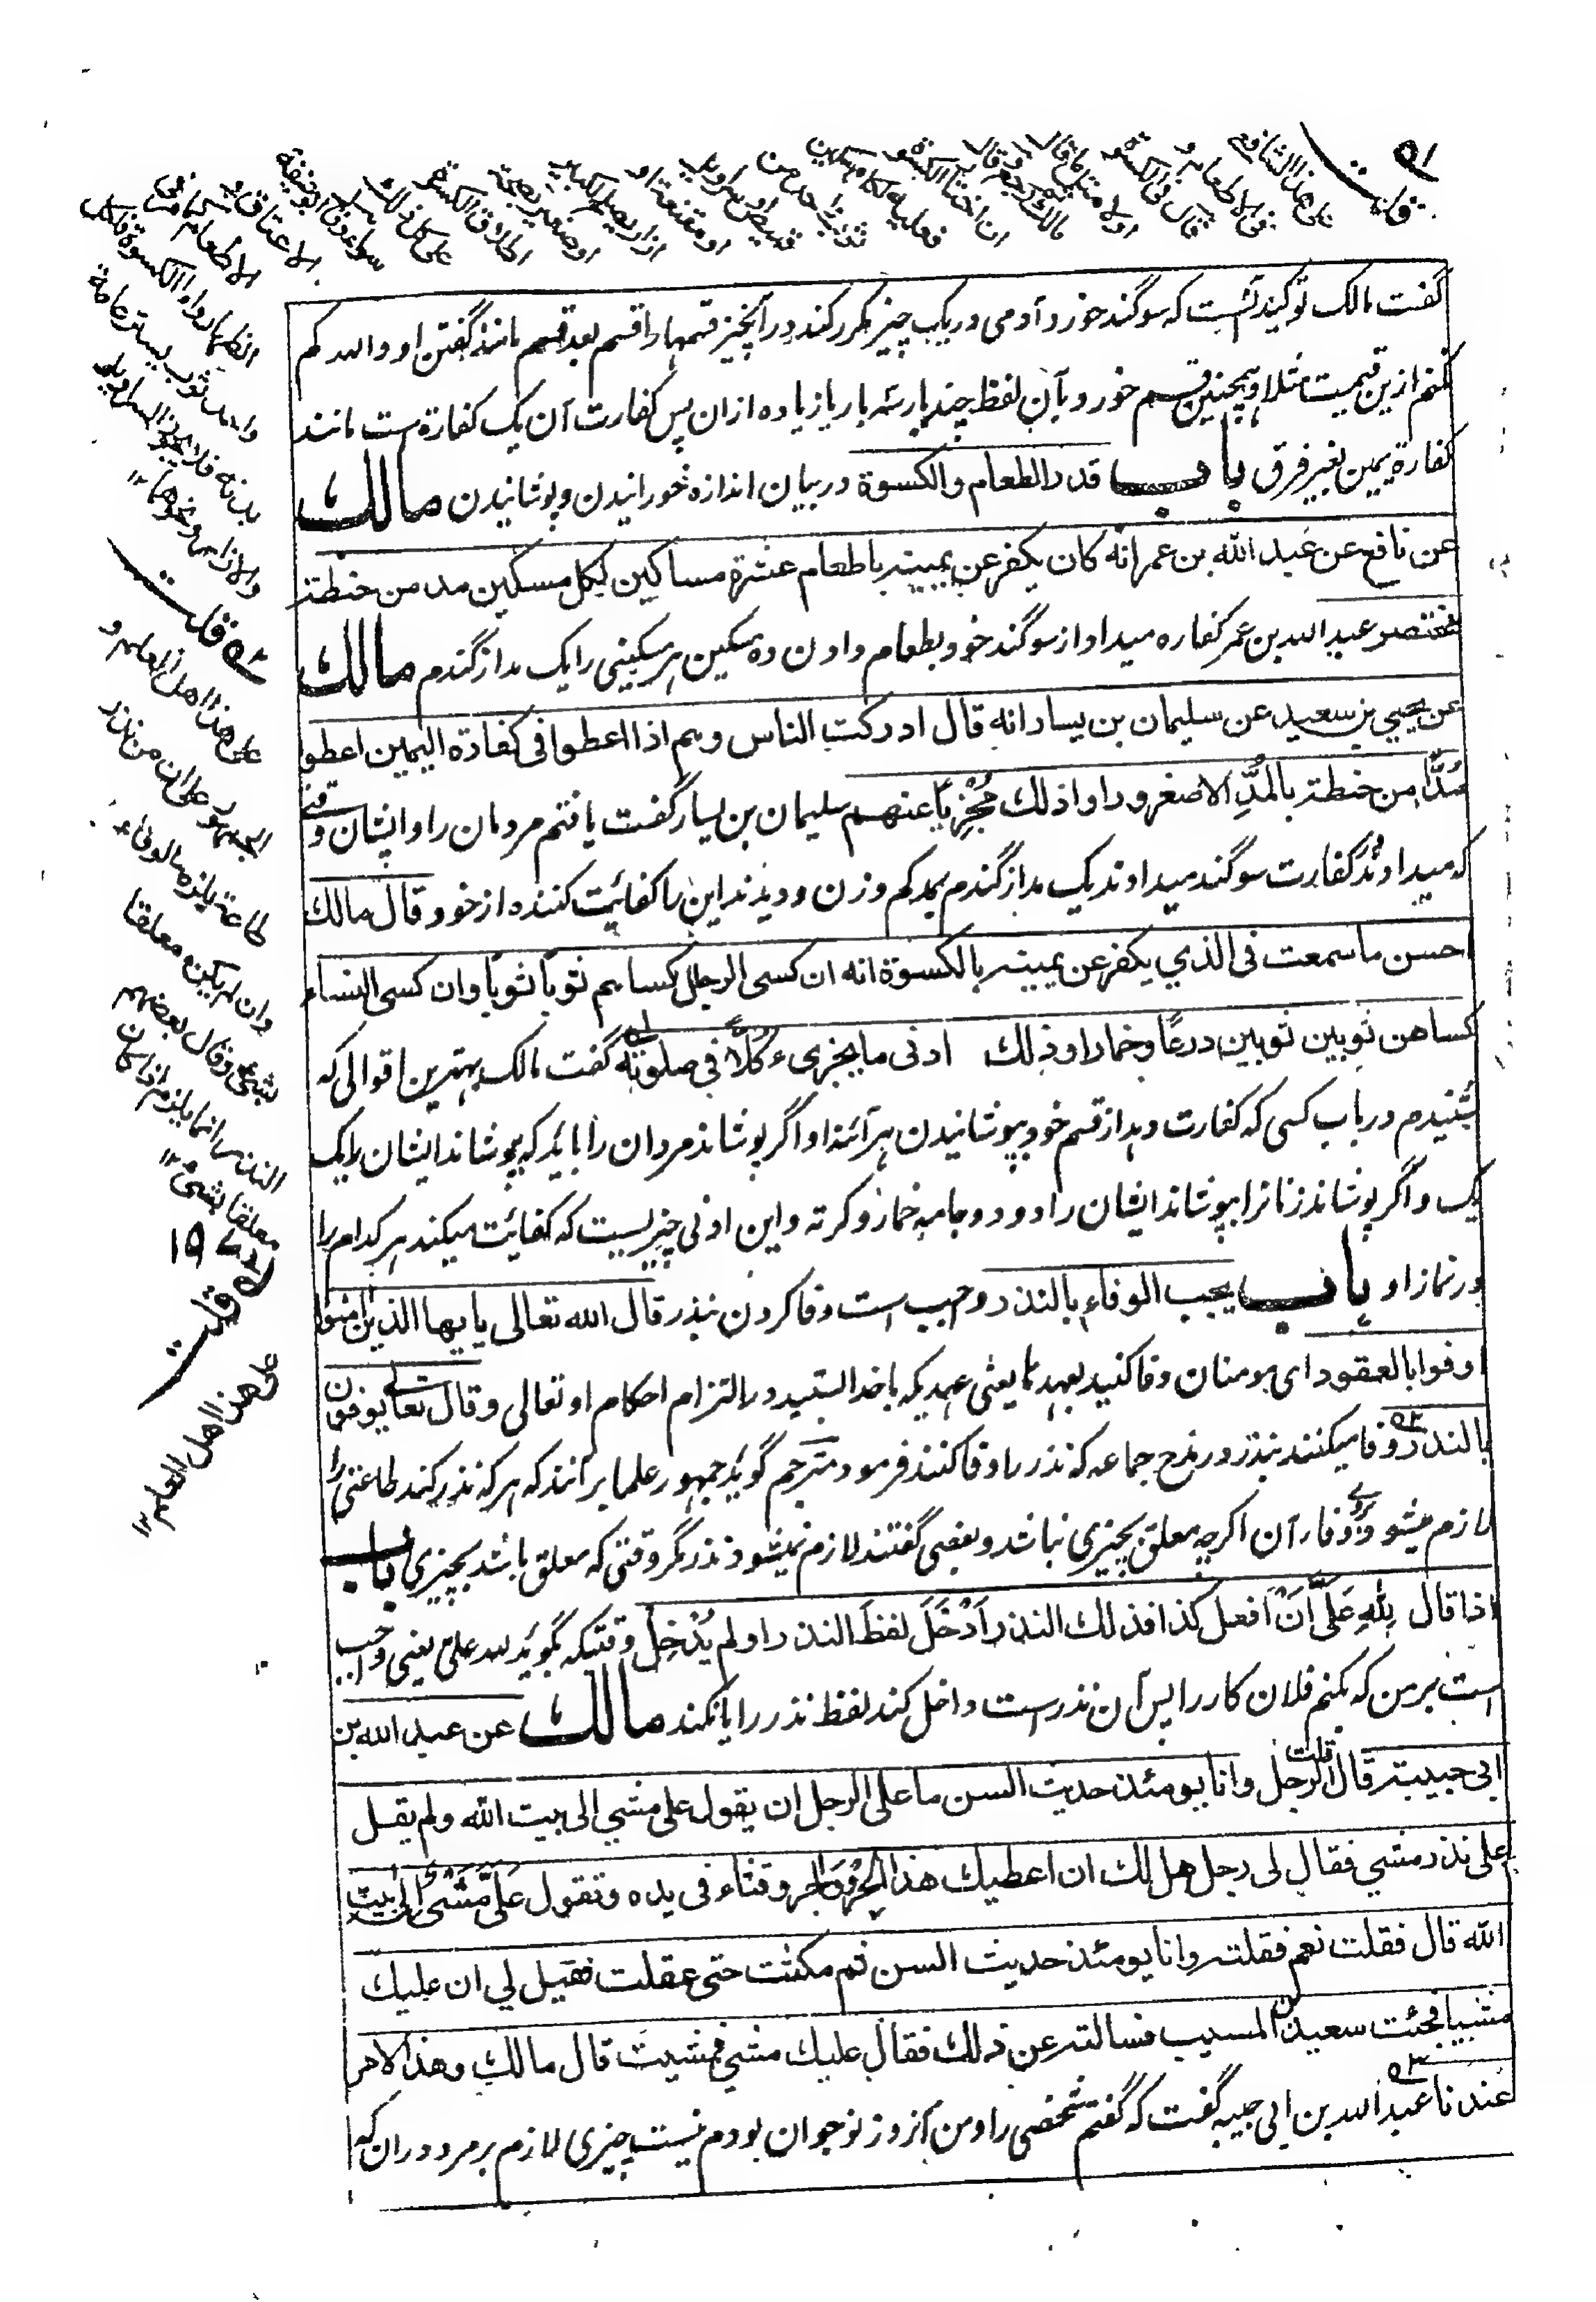 گفت مالک توکید آنست که سوگند خورد آدمی در یک چیز مکرر کند در آنچیز قسمها را قسم بعد قسم مانند گفتن او والله کم
نکنم ازین قیمت مثلا و همچنین قسم خورد بآن لفظ چند بار سه بار یا زیاده ازان پس کفارت آن یک کفارة ست مانند
کفارة یمین بغیر فرق باب قدر الطعام والكسوة در بیان اندازه خورانیدن و پوشانیدن مالك
عن نافع عن عبد الله بن عمر انه كان يكفر عن يمينه باطعام عشرة مساكين لكل مسكين مد من حنطة
عبد الله بن عمر کفاره میداد از سوگند خود بطعام دادن ده مسکین هر مسکینی را یک مد از گندم مالك
عن يحيي بن سعيد عن سليمان بن يسار انه قال ادركت الناس وهم اذا اعطوا فى كفارة اليمين اعطوا
مُدًّا من حنطة بالمُدِّ الاصغر وراوا ذلك مُجْزِيًا عنهم سلیمان بن یسار گفت یافتم مردمان را و ایشان وقتی
که میدادند در کفارت سوگند میدادند یک مد از گندم بمد کم وزن و دیدند این را کفایت کننده از خود قال مالك
احسن ما سمعت فى الذي يكفر عن يمينه بالكسوة انه ان كسى الرجل كساهم ثوبًا ثوبًا وان كسى النساء
كساهن ثوبين ثوبين درعًا وخمارا وذلك ادنى ما يجزىء كُلًّا في صلوته گفت مالک بهترین اقوالی که
شنیدم در باب کسی که کفارت دهد از قسم خود بپوشانیدن هرآئنه او اگر پوشاند مردان را باید که بپوشاند ایشان را یک
یک و اگر پوشاند زنانرا بپوشاند ایشان را دو دو جامه خمار و کرته و این ادنی چیزیست که کفایت میکند هر کدام را
در نماز او باب يجب الوفاء بالنذر واجب است وفا کردن نذر قال الله تعالى يايها الذين امنوا
اوفوا بالعقود ای مومنان وفا کنید بعهدها یعنی عهدیکه با خدا بستید در التزام احکام او تعالی وقال تعالى يوفون
بالنذر وفا میکنند بنذر در مدح جماعه که نذر را وفا کنند فرمود مترجم گوید جمهور علما برانند که هر که نذر کند طاعتی را
لازم میشود بروی وفاء آن اگرچه معلق بچیزی نباشد و بعضی گفتند لازم نمیشود نذر مگر وقتی که معلق باشد بچیزی باب
اذا قال لِلّٰهِ عَلَيَّ اَنْ اَفعل كذا فذلك النذر اَدْخَلَ لفظَ النذر اولم يُدْخِلْ وقتیکه بگوید لله علی یعنی واجب
است برمن که بکنم فلان کار را پس آن نذر است داخل کند لفظ نذر را یا نکند مالك عن عبد الله بن
ابى حبيبة قال قلت لرجل وانا يومئذ حديث السن ما على الرجل ان يقول على مشي الى بيت الله ولم يقل
على نذر مشي فقال لى رجل هل لك ان اعطيك هذا الجرو لجرو قثاء فى يده وتقول عَلَيَّ مَشْىٌ الى بيت
الله قال فقلت نعم فقلته وانا يومئذ حديث السن ثم مكثت حتى عقلت فقيل لي ان عليك
مشيا فجئت سعيد بن المسيب فسالته عن ذلك فقال عليك مشي فمشيت قال مالك وهذا الامر
عندنا عبد الله بن ابی حبیبه گفت که گفتم شخصی را و من آنروز نوجوان بودم نیست چیزی لازم بر مرد دران که
قلت
على هذا الشافعى
فى الاطعام و
قال فى الكسوة
قلت
على هذا اهل العلم و
الجمهور على ان من نذر
طاعة يلزمه الوفاء
وان لم يكن معلقا
بشئ وقال بعضهم
النذر انما يلزم اذا كان
معلقا بشئ ١٢
قلت
على هذا اهل العلم ١٢